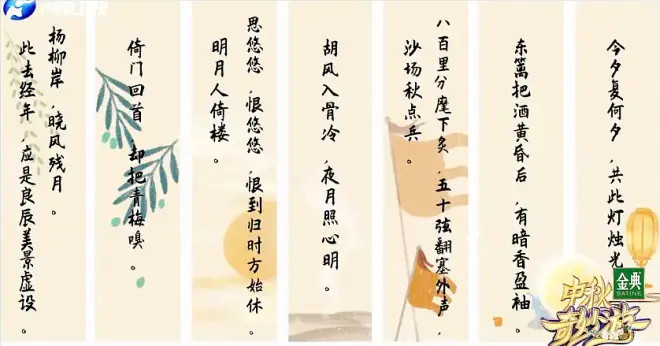 今夕复何夕，共此灯烛光
东篱把酒黄昏后，有暗香盈袖。
八百里分麾下炙，五十弦翻塞外声，
沙场秋点兵。
胡风入骨冷，夜月照心明。
思悠悠，恨悠悠，恨到归时方始休。
明月人倚楼。
倚门回首，却把青梅嗅。
杨柳岸，晓风残月。
此去经年，应是良辰美景虚设。
金典
SATINE
中秋
奇妙游